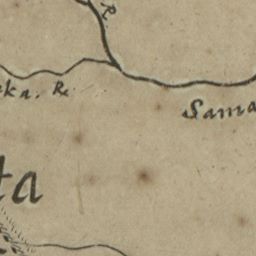 R.
ka. R.
Sama
ta